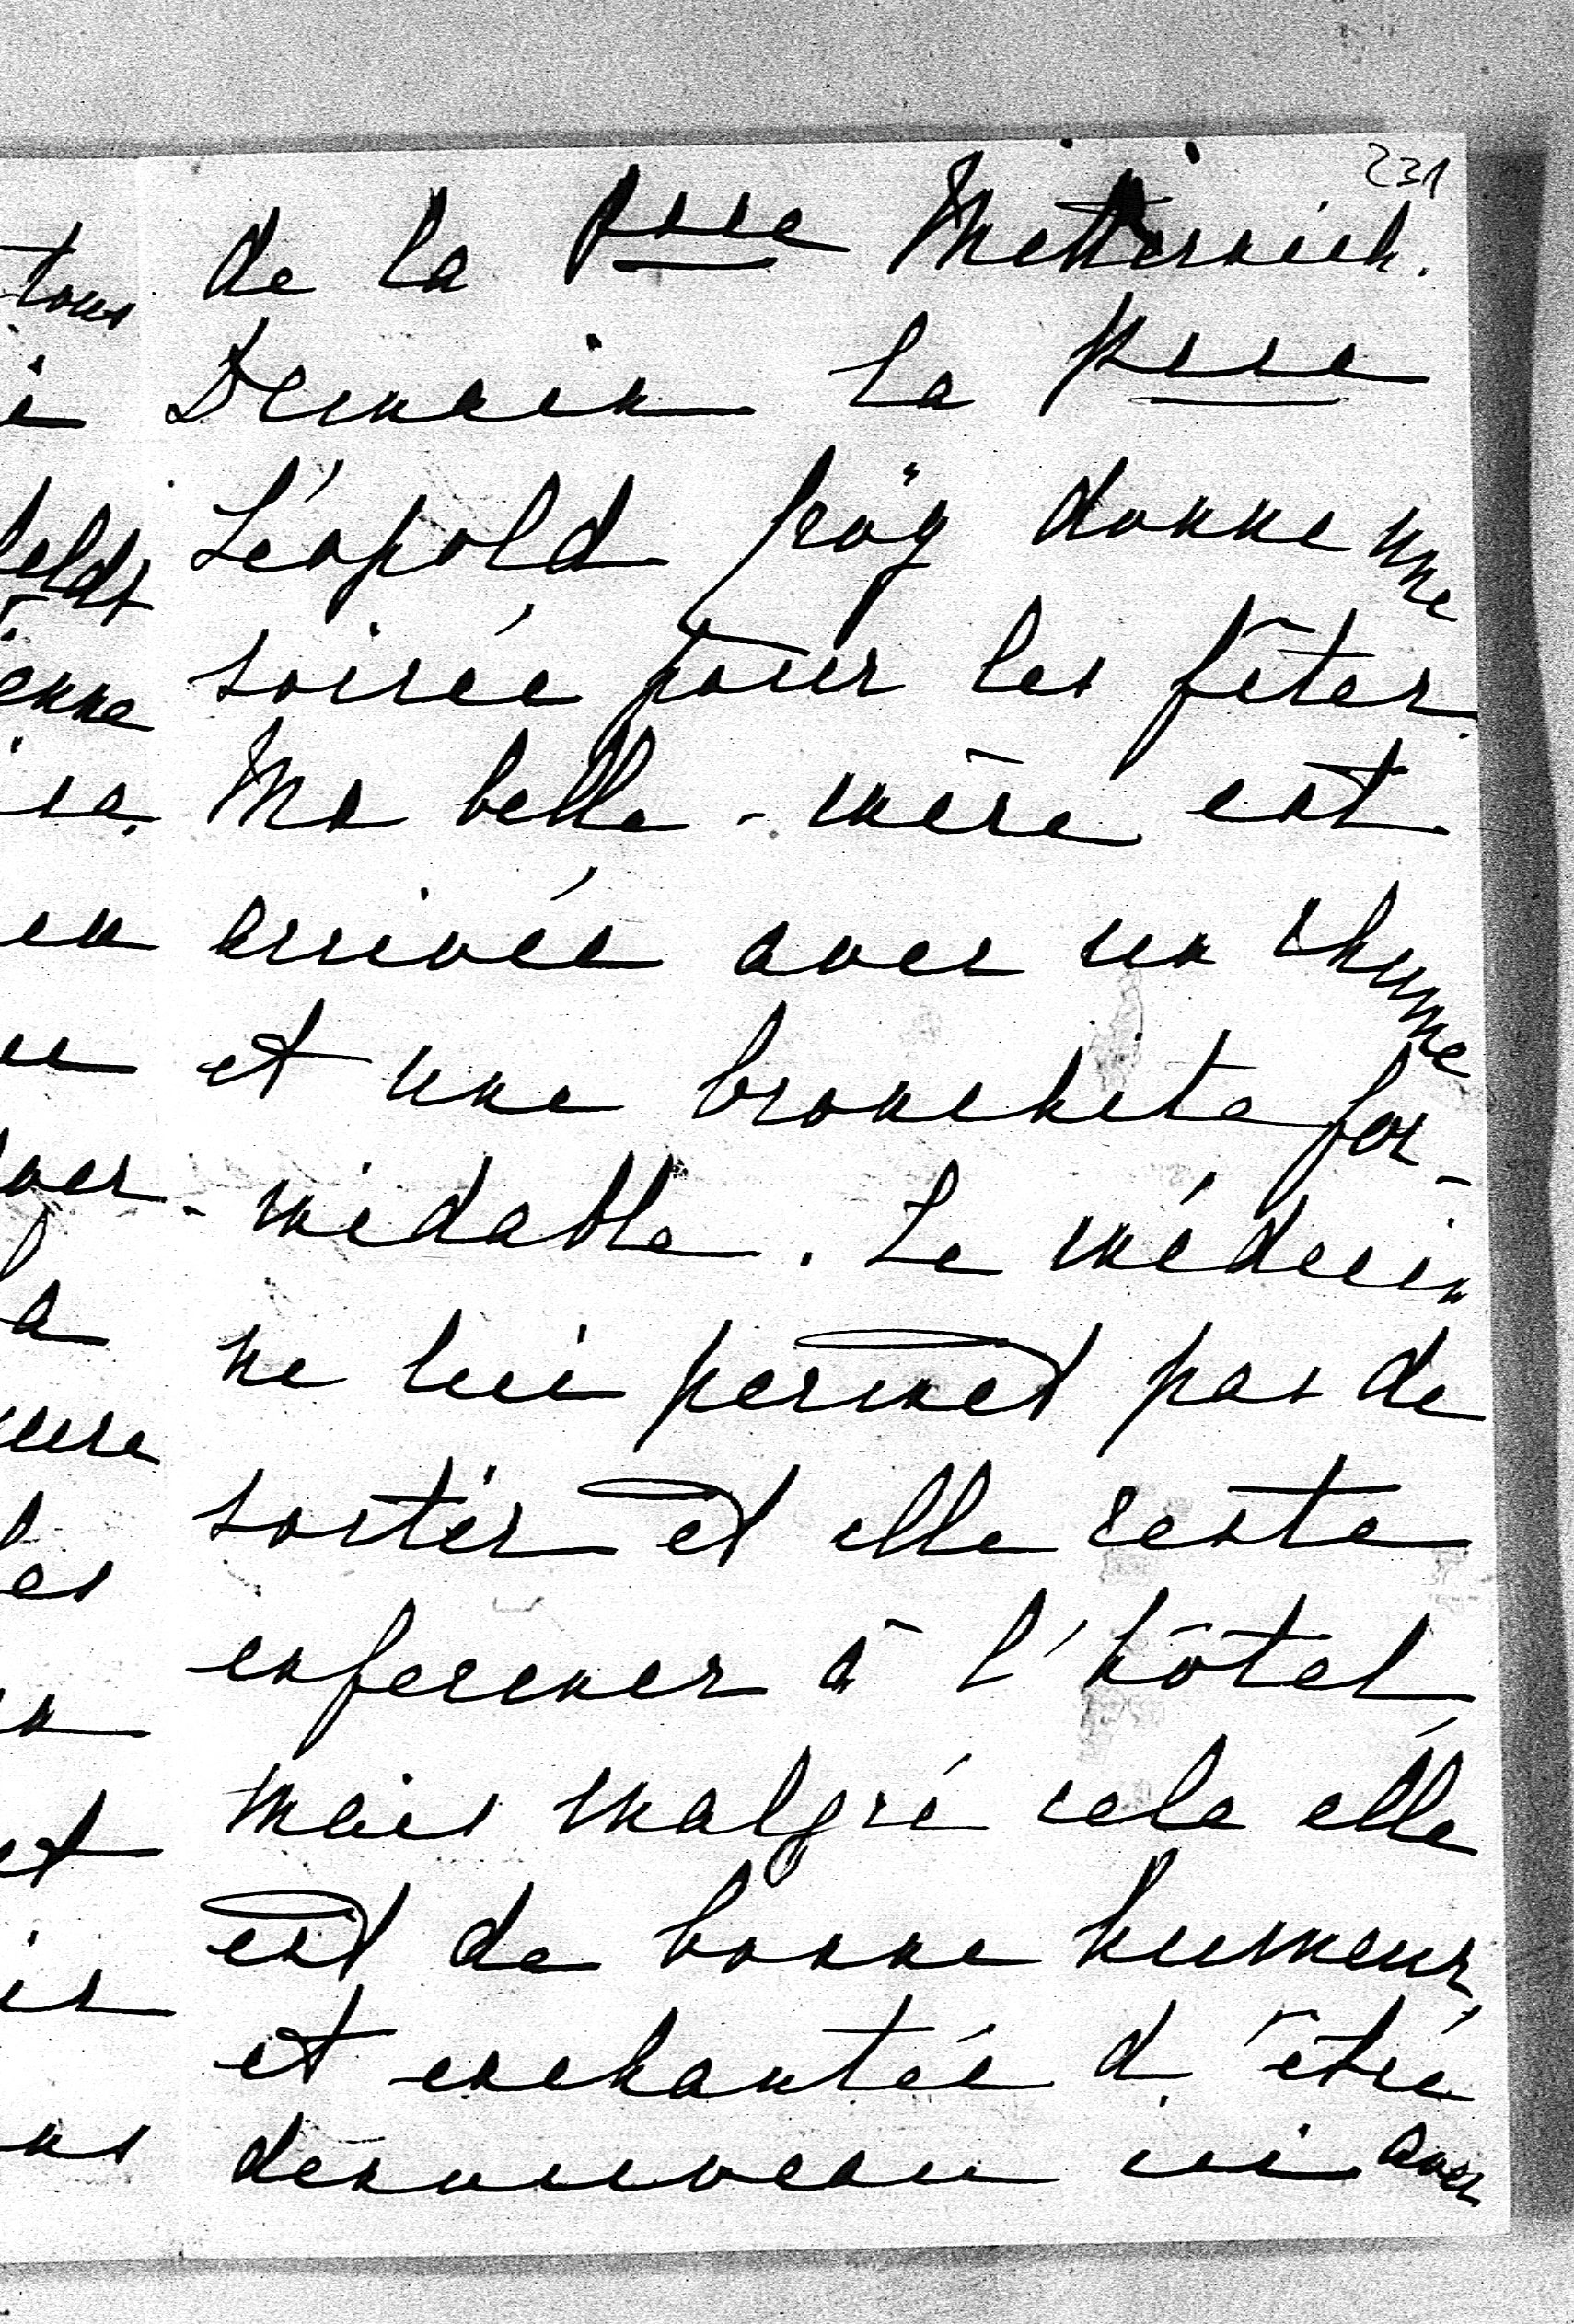 231
de la Psse Metternich.
Demain la Psse
Léopold Croÿ donne une
soirée pour les fêter.
Ma belle-mère est
arrivée avec un rhume
et une bronchite for-
-midable. Le médecin
ne lui permet pas de
sortir et elle reste
enfermer à l'hôtel
mais malgré cela elle
est de bonne humeur,
et enchantée d'être
denouveau ici avec